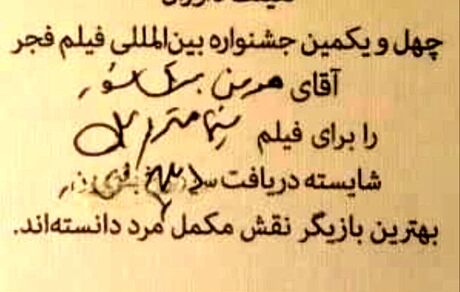 هیئت داوران
چهل و یکمین جشنواره بین‌المللی فیلم فجر
آقای هومن برق نورد
را برای فیلم سینما متروپل
شایسته دریافت سیمرغ بلورین
بهترین بازیگر نقش مکمل مرد دانسته‌اند.